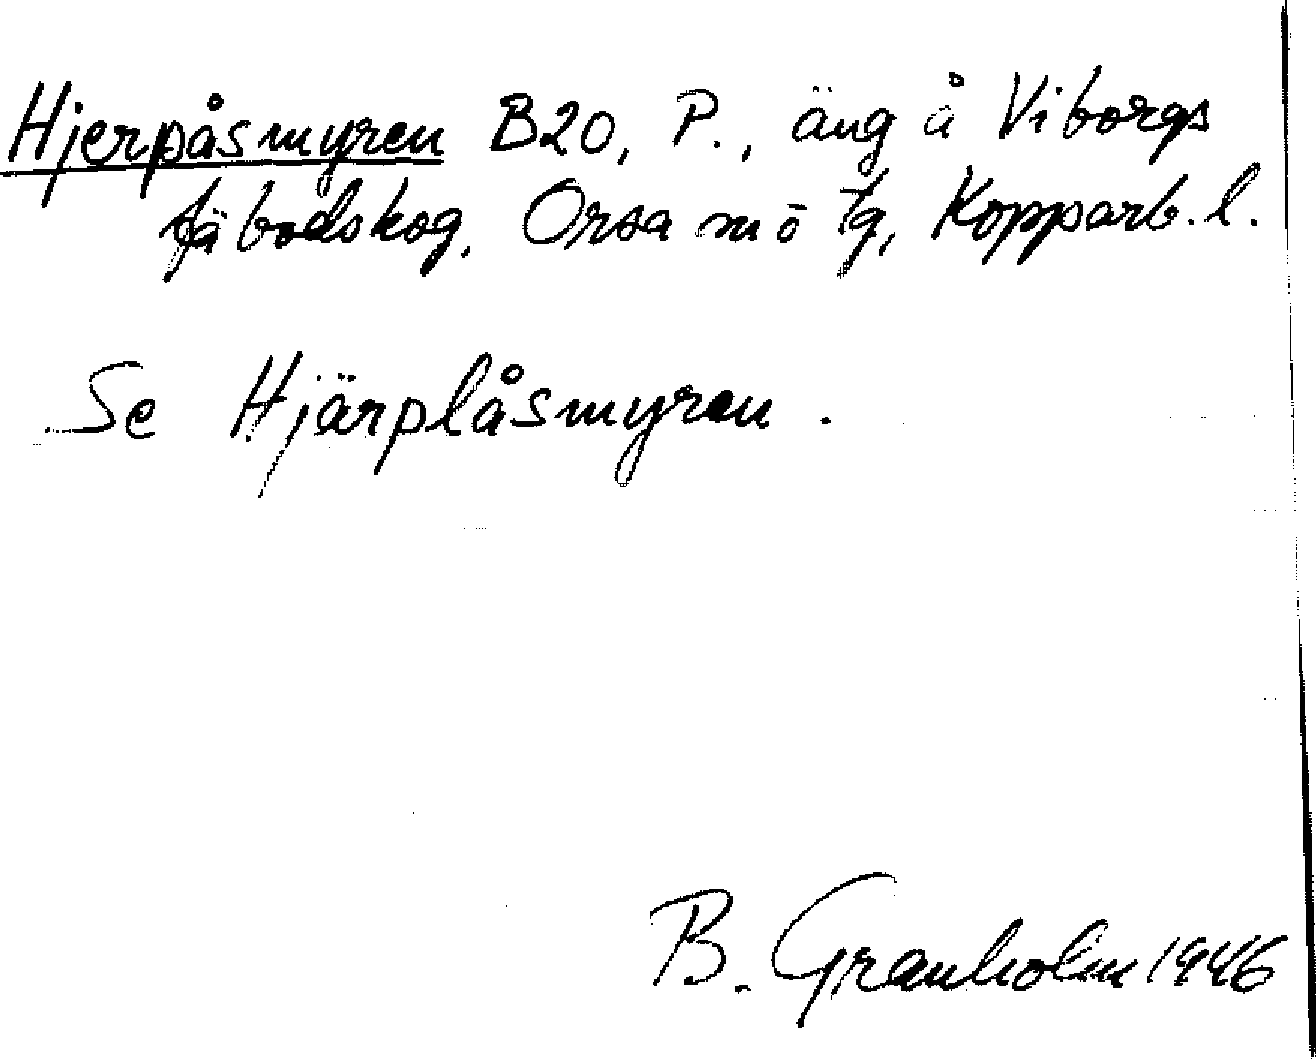 Hjerpåsmyren B20, P., äng å Viborgs
fäbodskog, Orsa sn o tg, Kopparb. l.
Se Hjärplåsmyren.
B. Granholm 1946